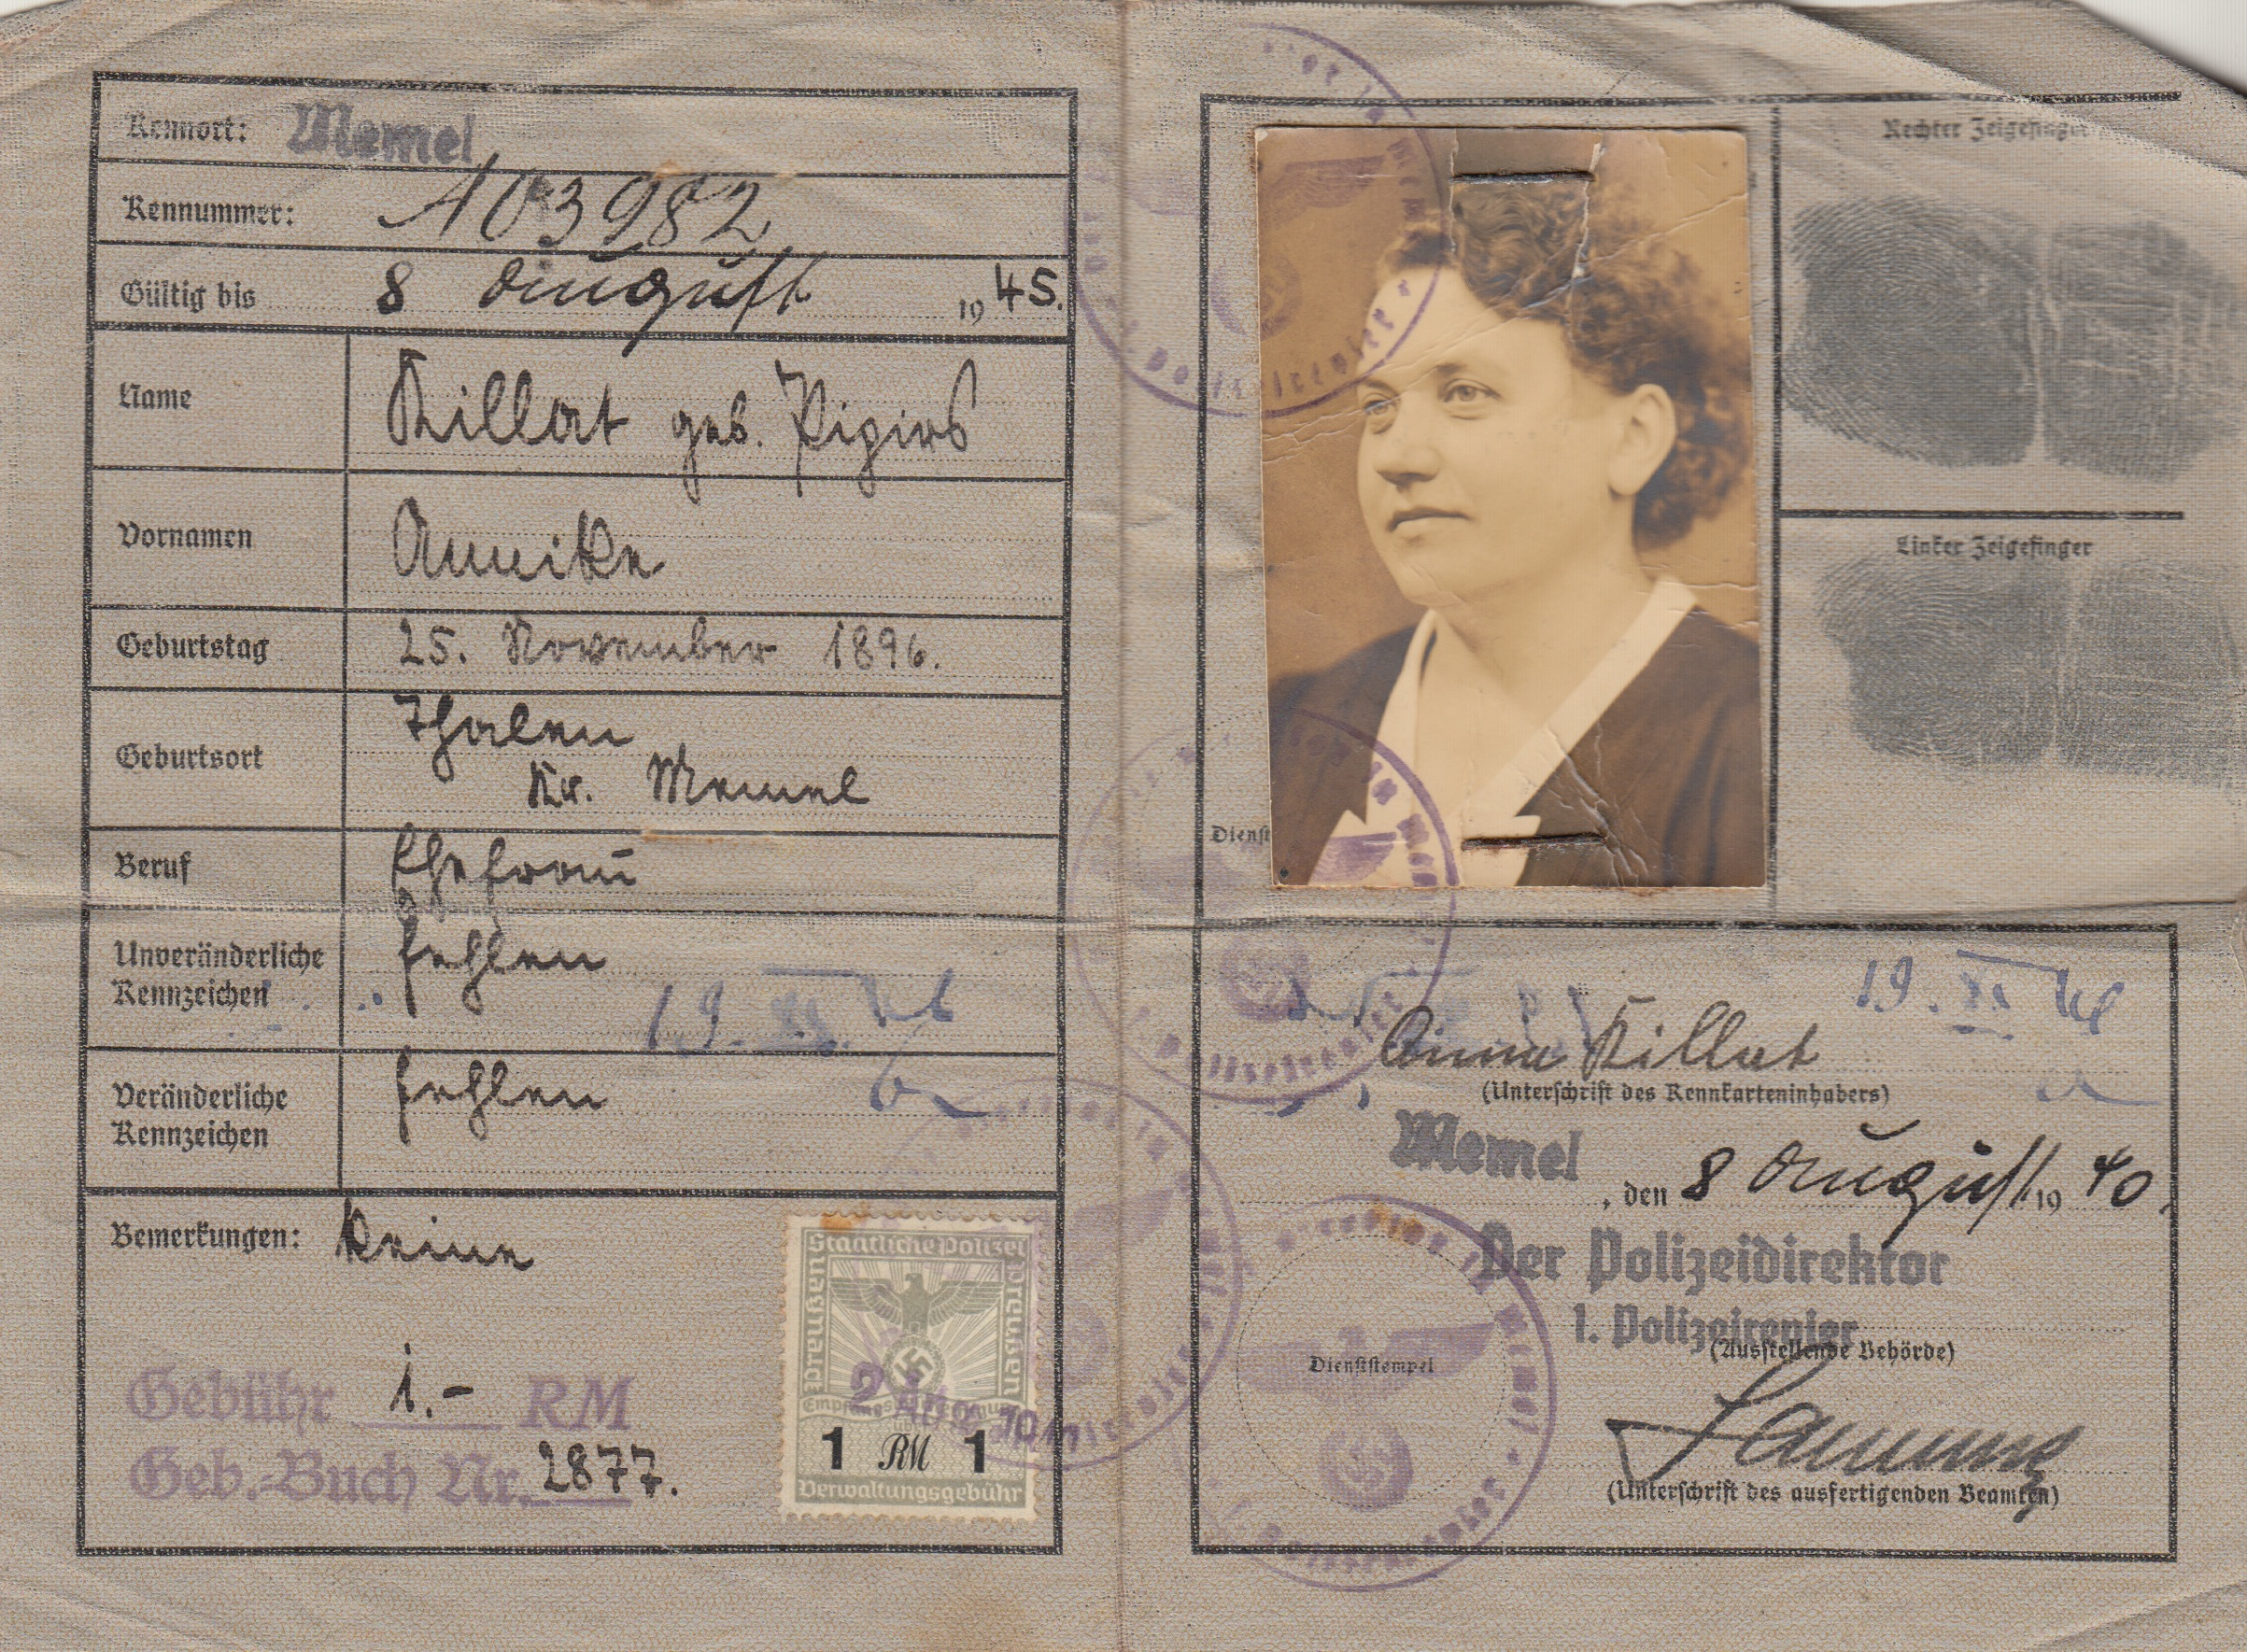 Kennort: Memel
Kennummer: A 03982
Gültig bis 8 August 1945.
Name Killat geb. Pigirs
Vornamen Annike
Geburtstag 25. November 1896.
Geburtsort Thalen
Kr. Memel
Beruf Ehefrau
Unveränderliche Kennzeichen fehlen
Veränderliche Kennzeichen fehlen
Bemerkungen: keine
Gebühr 1.- RM
Geb.-Buch Nr. 2877.
Staatliche Polizei
Preußen
Preussen
1 RM 1
Verwaltungsgebühr
Rechter Zeigefinger
Linker Zeigefinger
Dienst
19. XI
19. XI
Anna Killat
(Unterschrift des Kennkarteninhabers)
Memel, den 8 August 1940.
Der Polizeidirektor
1. Polizeirevier
(Ausstellende Behörde)
Dienststempel
(Unterschrift des ausfertigenden Beamten)